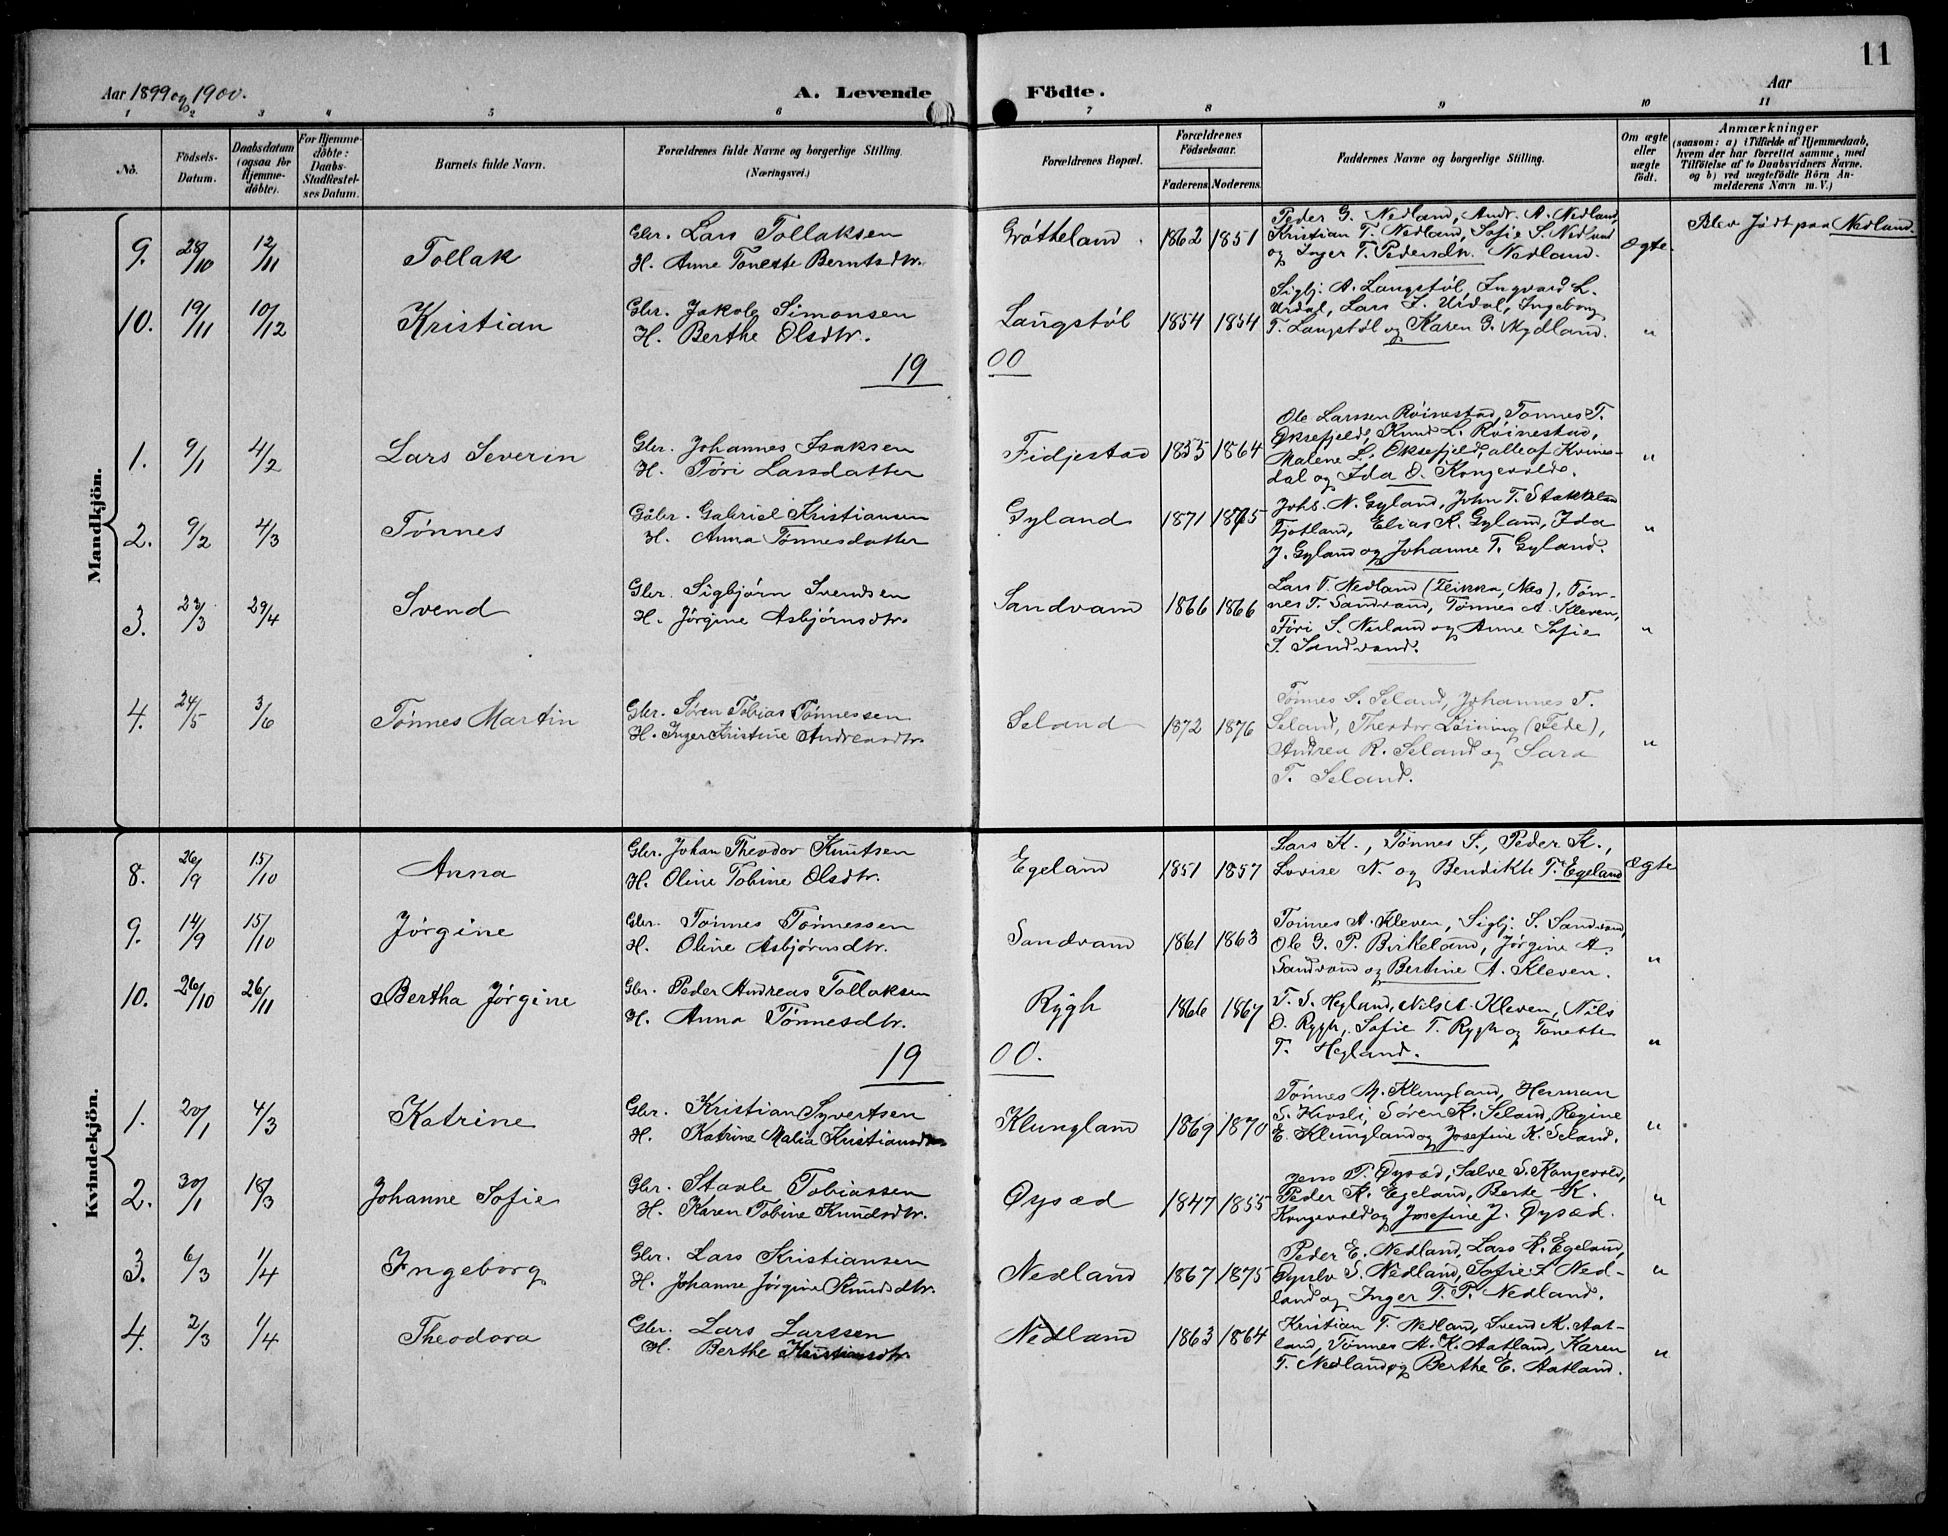 Aar 1899 og 1900. A. Levende Födte. Aar 11
1 2 3 4 5 6 7 8 9 10 11
No.
Födsels-
Datum.
Daabsdatum
(ogsaa for
Hjemme-
döbte).
For Hjemme-
döbte:
Daabs-
Stadfæstel-
ses Datum.
Barnets fulde Navn.
Forældrenes fulde Navne og borgerlige Stilling.
(Næringsvei.)
Forældrenes Bopæl.
Forældrenes
Födselsaar.
Faderens. Moderens.
Faddernes Navne og borgerlige Stilling.
Om ægte
eller
uægte
födt.
Anmærkninger
(saasom: a) i Tilfælde af Hjemmedaab,
hvem der har forrettet samme, med
Tilföielse af to Daabsvidners Navne.
og b) ved uægtefödte Börn An-
melderens Navn m. V.)
Mandkjön.
9. 28/10 12/11 Tollak
Gbr. Lars Tollaksen
H. Anne Tonette Berntsdtr.
Grøtteland. 1862 1851
Peder G. Nedland, Andr. A. Nedland,
Kristian T. Nedland, Sofie S. Nedland
og Inger T. Pedersdtr. Nedland.
Ægte. Blev født paa Nedland.
10. 19/11 10/12 Kristian
Gbr. Jakob Simonsen
H. Berthe Olsdtr.
Langstøl 1854 1854
Sigbj. A. Langstøl, Ingvard L.
Urdal, Lars I. Urdal, Ingeborg
T. Langstøl og Karen G. Mydland. "
19 00
1. 9/1 4/2 Lars Severin
Gbr. Johannes Isaksen
H. Tøri Larsdatter
Fidjestad 1855 1864
Ole Larssen Røinestad, Tønnes T.
Øksefjeld, Knud L. Røinestad,
Malene L. Øksefjeld, alle af Kvines-
dal og Ida O. Kongevold. "
2. 9/2 4/3 Tønnes
Gbr. Gabriel Kristiansen
H. Anna Tønnesdatter
Gyland 1871 1875
Johs. N. Gyland, John T. Stakkeland
Fjotland, Elias K. Gyland, Ida
J. Gyland og Johanne T. Gyland. "
3. 23/3 29/4 Svend
Gbr. Sigbjørn Svendsen
H. Jørgine Asbjørnsdtr.
Sandvand 1866 1866
Lars T. Nedland (Nes), Tøn-
nes T. Sandvand, Tønnes A. Kleven,
Tøri S. Nuland og Anne Sofie
S. Sandvand. "
4. 24/5 3/6 Tønnes Martin
Gbr. Søren Tobias Tønnessen
H. Inger Kristine Andreasdtr.
Seland 1872 1876
Tønnes S. Seland, Johannes T.
Seland, Theodor Løining (Fede),
Andrea R. Seland og Sara
T. Seland. "
Kvindekjön.
8. 26/9 15/10 Anna
Gbr. Johan Theodor Knutsen
H. Oline Tobine Olsdtr.
Egeland 1851 1857
Lars K., Tønnes S., Peder K.,
Lovise N. og Bendikte T. Egeland Ægte
9. 14/9 15/10 Jørgine
Gbr. Tønnes Tønnessen
H. Oline Asbjørnsdtr.
Sandvand 1861 1863
Tønnes A. Kleven, Sigbj. S. Sandvand,
Ole G. P. Birkeland, Jørgine A.
Sandvand og Bertine A. Kleven. "
10. 26/10 26/11 Bertha Jørgine
Gbr. Peder Andreas Tollaksen
H. Anna Tønnesdtr.
Rygh 1866 1867
T. S. Hegland, Nils A. Kleven, Nils
O. Rygh, Sofie T. Rygh og Tonette
T. Hegland. "
19 00.
1. 20/1 4/3 Katrine
Gbr. Kristian Syvertsen
H. Katrine Malia Kristiansdtr
Klungland 1869 1870
Tønnes M. Klungland, Herman
S. Kvosli, Søren K. Seland, Regine
E. Klungland og Josefine K. Seland. "
2. 30/1 18/3 Johanne Sofie
Gbr. Stavle Tobiassen
H. Karen Tobine Knudsdtr.
Øysæd 1847 1855
Jens T. Øysæd, Salve S. Kongevold,
Peder K. Egeland, Berte K.
Kongevold og Josefine J. Øysæd. "
3. 6/3 1/4 Ingeborg
Gbr. Lars Kristiansen
H. Johanne Jørgine Knudsdtr.
Nedland 1867 1875
Peder E. Nedland, Lars K. Egeland,
S. Nedland, Sofie S. Ned-
land og Inger T. P. Nedland. "
4. 2/3 1/4 Theodora
Gbr. Lars Larssen
H. Berthe Kristiansdtr.
Nedland 1863 1864
Kristian T. Nedland, Svend K. Aat-
land, Tønnes A. K. Aatland, Karen
T. Nedland og Berthe E. Aatland. "